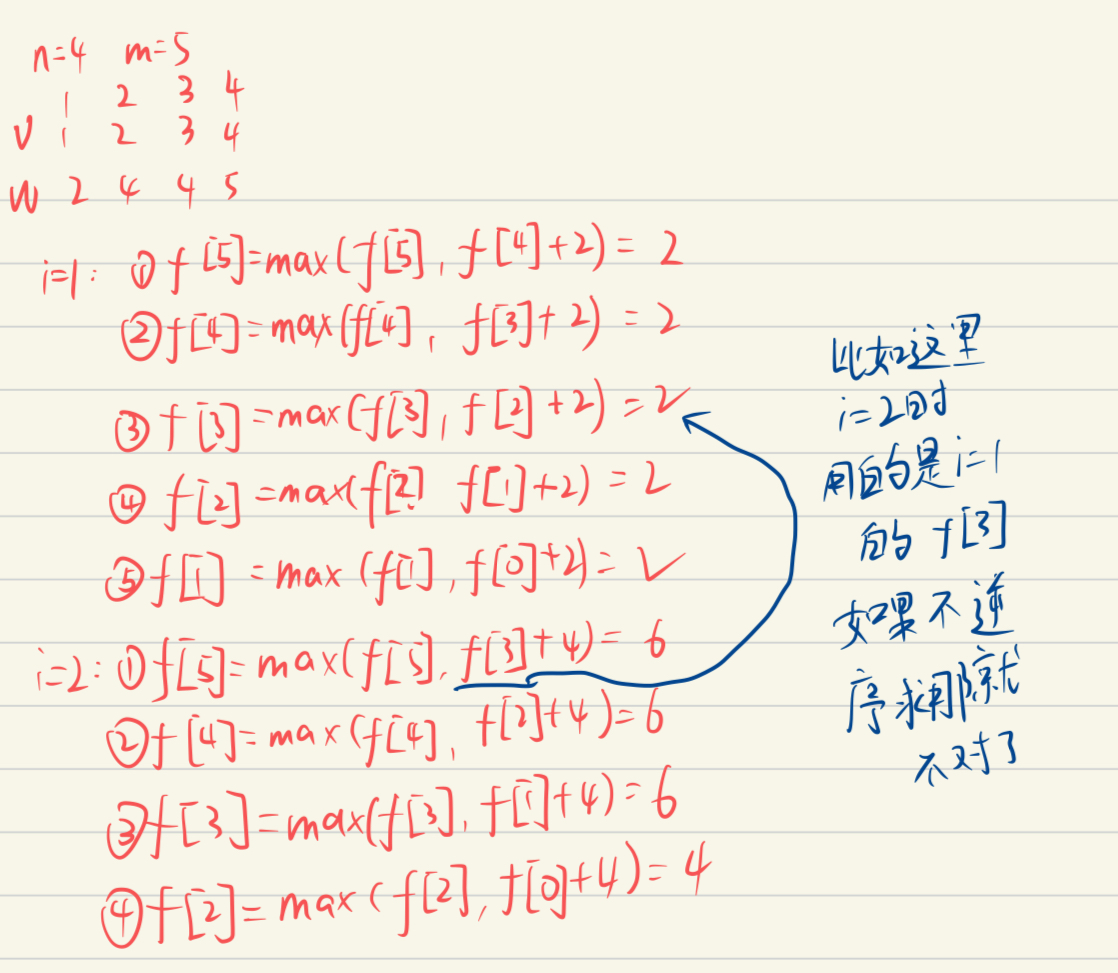 n=4 m=5
1 2 3 4
v 1 2 3 4
w 2 4 4 5
i=1: ①f[5]=max(f[5], f[4]+2)=2
②f[4]=max(f[4], f[3]+2)=2
③f[3]=max(f[3], f[2]+2)=2
④f[2]=max(f[2] f[1]+2)=2
⑤f[1]=max(f[1], f[0]+2)=2
i=2: ①f[5]=max(f[5], f[3]+4)=6
②f[4]=max(f[4], f[2]+4)=6
③f[3]=max(f[3], f[1]+4)=6
④f[2]=max(f[2], f[0]+4)=4
比如这里
i=2时
用的是i=1
的f[3]
如果不逆
序求
就
不对了